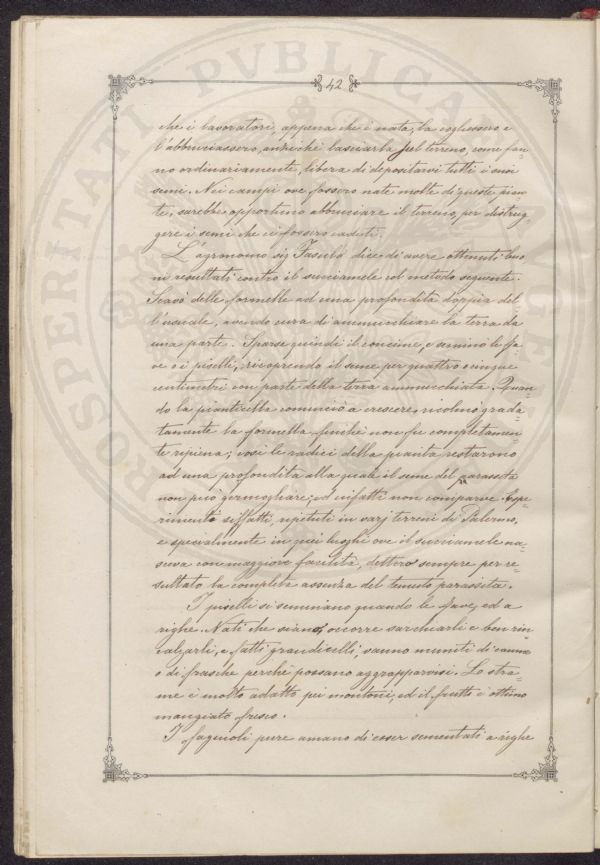 42
che i lavoratori, appena che è nata, la cogliessero e
l'abbruciassero, anzichè lasciarla sul terreno, come fan=
no ordinariamente, libera di depositarvi tutti i suoi
semi. Nei campi ove fossero nate molte di queste pian=
te, sarebbe opportuno abbruciare il terreno, per distrug=
gere i semi che ci fossero caduti.
L'agronomo sig. Fasulo dice di avere ottenuti buo=
ni resultati contro il succiamele col metodo seguente.
Scavò delle formelle ad una profondità doppia del=
l'usuale, avendo cura di ammucchiare la terra da
una parte. Sparse quindi il concime, e seminò le fa=
ve o i piselli, ricoprendo il seme per quattro o cinque
centimetri con parte della terra ammucchiata. Quan=
do la pianticella cominciò a crescere, ricolmò grada=
tamente la formella finchè non fu completamen=
te ripiena; così le radici della pianta restarono
ad una profondità alla quale il seme del parassita
non può germogliare; ed infatti non comparve. Espe=
rimenti siffatti, ripetuti in varj terreni di Palermo,
e specialmente in quei luoghi ove il succiamele na=
sceva con maggiore facilità, dettero sempre per re=
sultato la completa assenza del temuto parassita.
I piselli si seminano quando le fave, ed a
righe. Nati che siano, occorre sarchiarli e ben rin=
calzarli, e fatti grandicelli, vanno muniti di canne
o di frasche perchè possano aggrapparvisi. Lo stra=
me è molto adatto pei montoni, ed il frutto è ottimo
mangiato fresco.
I fagiuoli pure amano di esser sementati a righe
PROSPERITATI PVBLICAE AVGENDAE